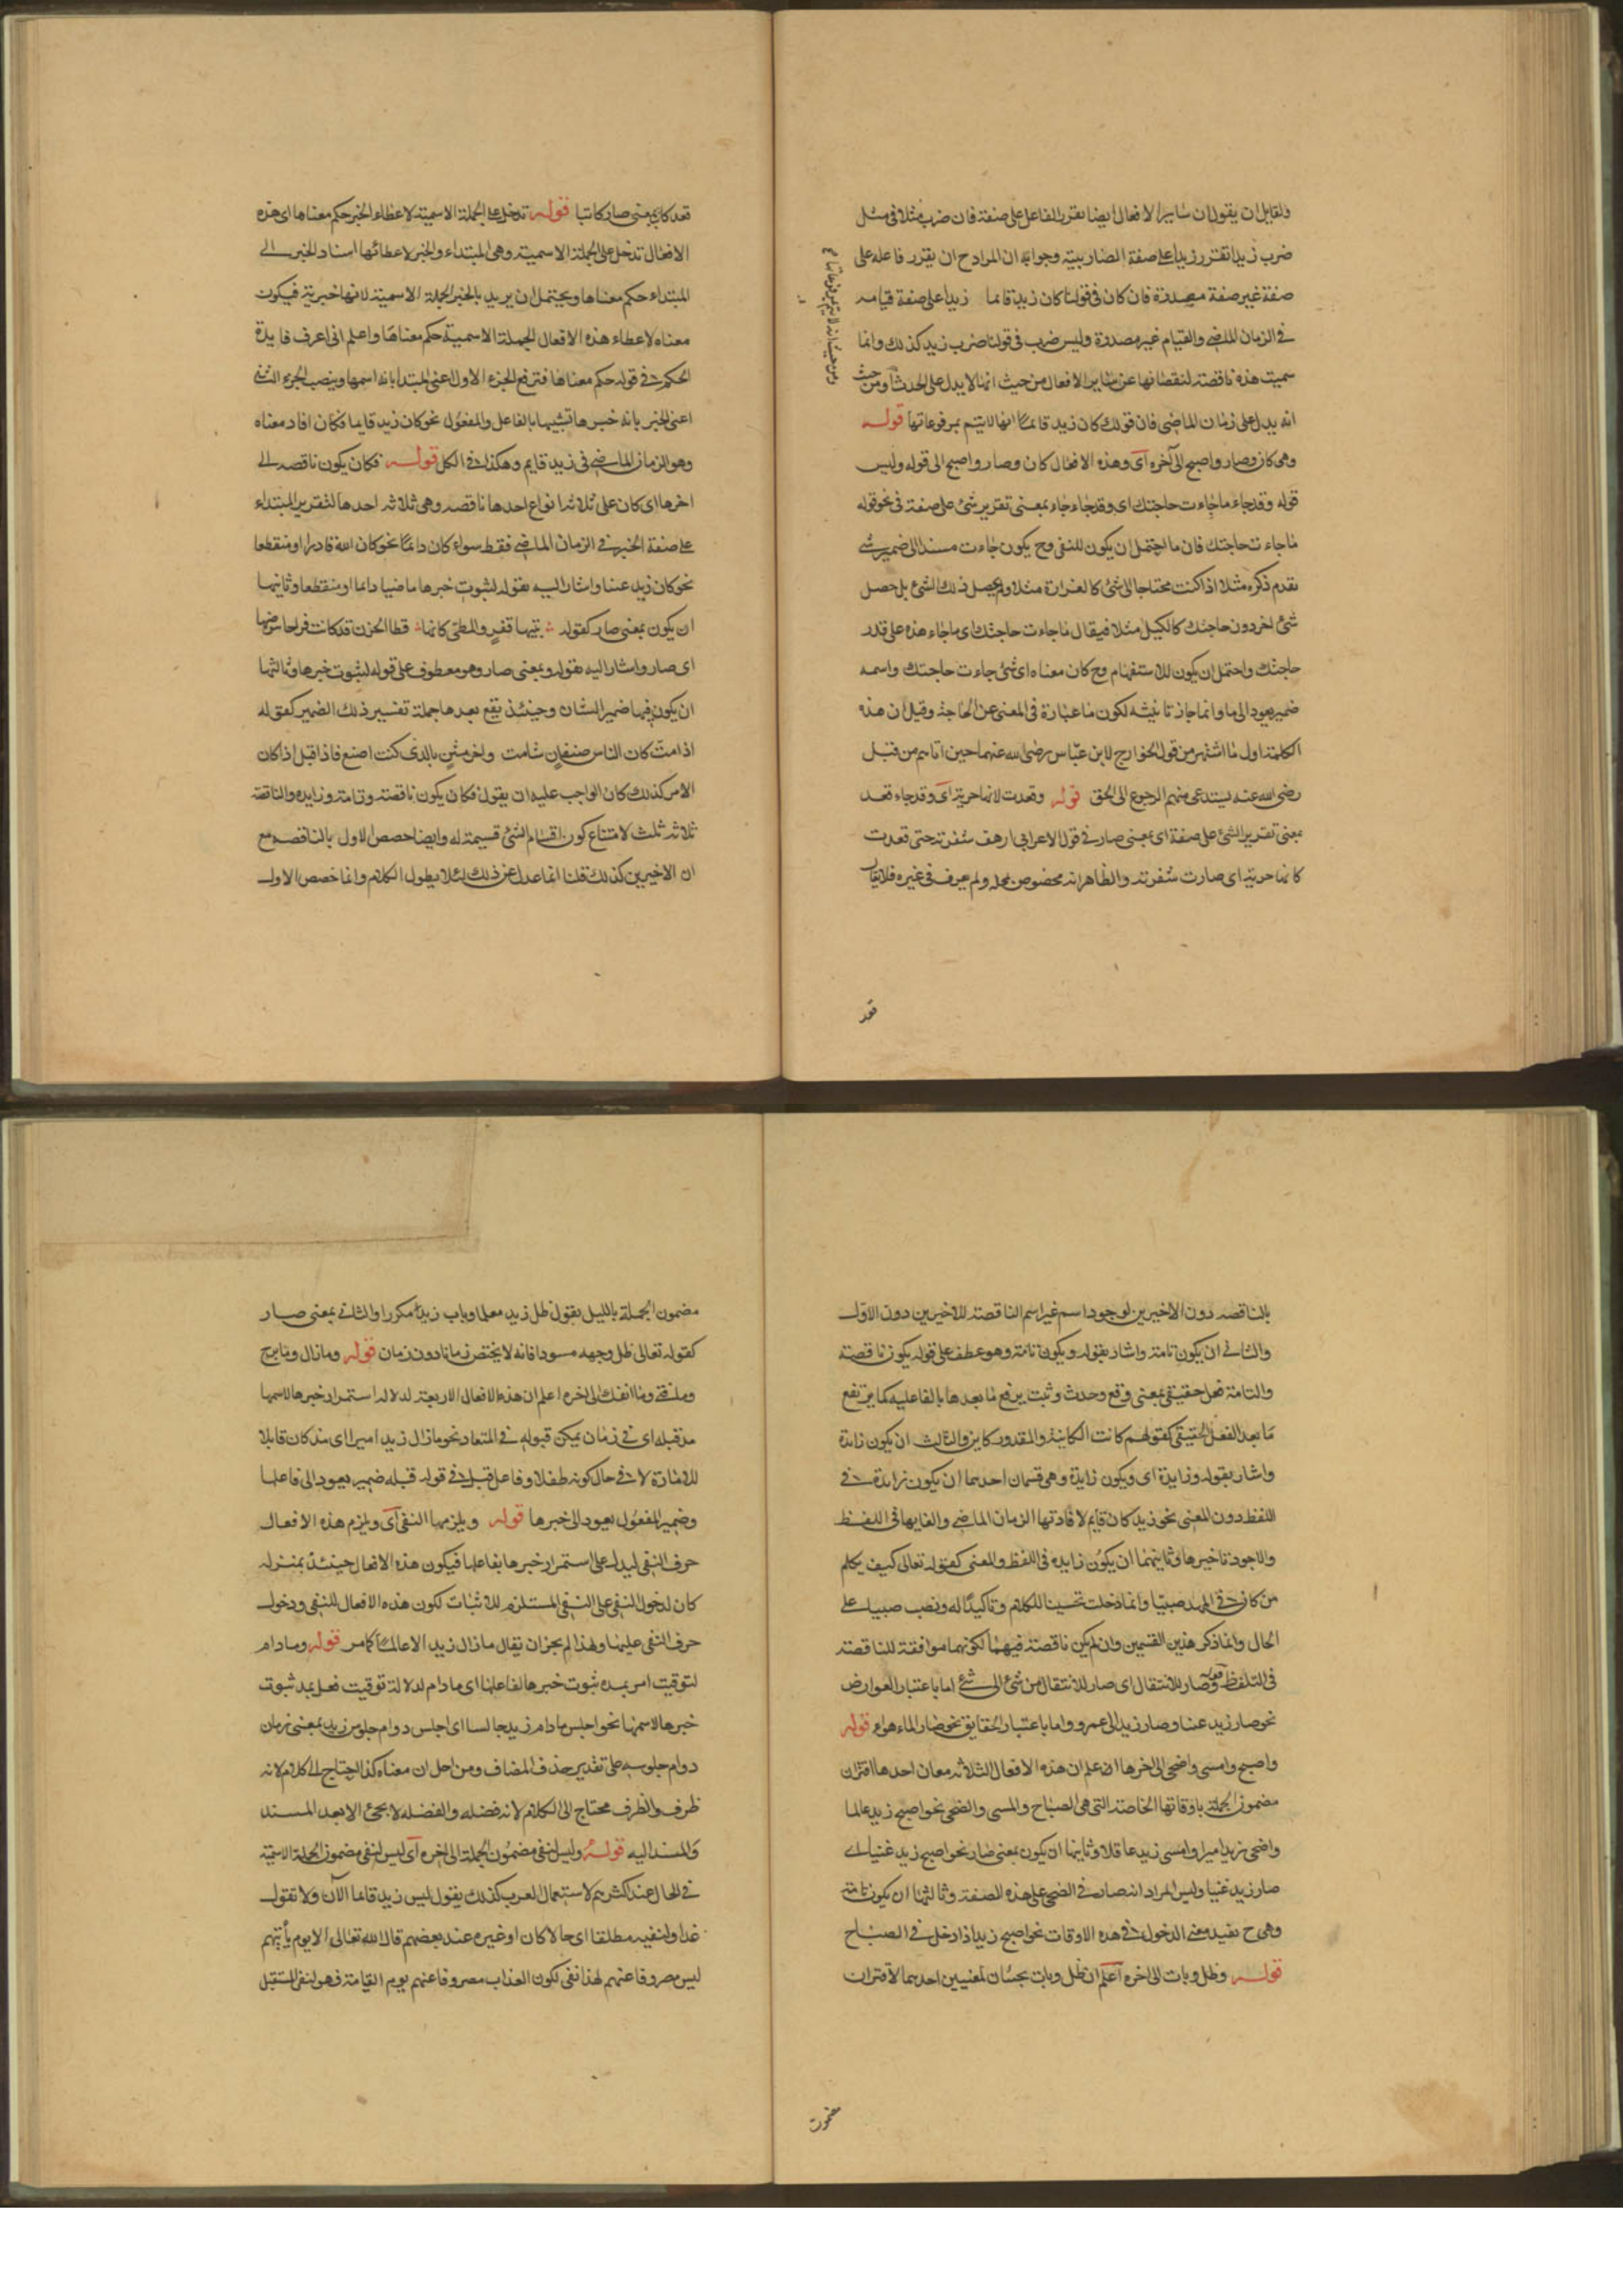 ولقايل ان يقول ان ساير الافعال ايضا تقرر الفاعل على صفة فان ضرب مثلا فى مثل
ضرب زيد تقرر زيدا على صفة الضاربية وجوابه ان المراد ح ان يقرر فاعله على
صفة غير صفة مصدره فان كان فى قولنا كان زيد قائما زيدا على صفة قيامه
فى الزمان الماضى والقيام غير مصدره وليس ضرب فى قولنا ضرب زيد كذلك وانما
سميت هذه ناقصة لنقصانها عن ساير الافعال من حيث انها لا يدل على الحدث ومن حيث
انه يدل على زمان الماضى فان قولك كان زيد قائما انها لا يتم بمرفوعاتها قوله
وهى كان وصار واصبح الى آخره اى وهذه الافعال كان وصار واصبح الى قوله وليس
قوله وقد جاء ما جاءت حاجتك اى وقد جاء جاء بمعنى تقرير شئ على صفة فى نحو قوله
ما جاءت حاجتك فان ما احتمل ان يكون للنفى وح يكون جاءت مسندا الى ضمير شئ
تقدم ذكره مثلا اذا كنت محتاجا الى شئ كالغرارة مثلا ولم يحصل ذلك الشئ بل حصل
شئ اخر دون حاجتك كالكيل مثلا فيقال ما جاءت حاجتك اى ما جاء هذه على قدر
حاجتك واحتمل ان يكون للاستفهام وح كان معناه اى شئ جاءت حاجتك واسمه
ضمير يعود الى ما وانما جاز تانيثه لكون ما عبارة فى المعنى عن الحاجة وقيل ان هذه
الكلمة اول ما اشتهر من قول الخوارج لابن عباس رضى الله عنهما حين اتاهم من قبل
رضى الله عنه يستدعى منهم الرجوع الى الحق قوله وقعدت كانها حربة اى وقد جاء قعد
بمعنى تقرير الشئ على صفة اى بمعنى صار فى قول الاعرابى ارهف شفرته حتى قعدت
كانها حربة اى صارت شفرته والظاهر انه مخصوص بمحله ولم يعرف فى غيره فلا يقال
ومن حيث انه لا يتم بمرفوعاتها
قعد
قعد كاتبا بمعنى صار كاتبا قوله تدخل على الجملة الاسمية لاعطاء الخبر حكم معناها اى هذه
الافعال تدخل على الجملة الاسمية وهى المبتداء والخبر لاعطائها اسناد الخبر الى
المبتداء حكم معناها ويحتمل ان يريد بالخبر الجملة الاسمية لانها خبرية فيكون
معناه لاعطاء هذه الافعال الجملة الاسمية حكم معناها واعلم انى اعرف فايدة
الحكم فى قوله حكم معناها فترفع الجزء الاول اعنى المبتدا بانه اسمها وينصب الجزء الثانى
اعنى الخبر بانه خبرها تشبيها بالفاعل والمفعول نحو كان زيد قايما فكان افاد معناه
وهو الزمان الماضى فى زيد قايم وهكذا فى الكل قوله فكان يكون ناقصه الى
اخرها اى كان على ثلاثه انواع احدها ناقصه وهى ثلاثه احدها لتقرير المبتداء
على صفة الخبر فى الزمان الماضى فقط سواء كان دائما نحو كان الله قادرا او منقطعا
نحو كان زيد غنيا واشار اليه بقوله لثبوت خبرها ماضيا دايما او منقطعا وثانيها
ان يكون بمعنى صار كقوله بتيهاء قفر والمطى كانها قطا الحزن قد كانت فراخا بيوضها
اى صار واشار اليه بقوله وبمعنى صار وهو معطوف على قوله لثبوت خبرها وثالثها
ان يكون فيها ضمير الشان وحينئذ يقع بعدها جملة تفسير ذلك الضمير كقوله
اذا مت كان الناس صنفان شامت واخر مثن بالذى كنت اصنع فاذا قيل اذا كان
الامر كذلك كان الواجب عليه ان يقول فكان يكون ناقصة وتامة وزايدة والناقصة
ثلاثه ثلث لامتناع كون اقسام الشئ قسيمة له وايضا حصص الاول بالناقصه مع
ان الاخيرين كذلك قلنا انما عدل عن ذلك لئلا يطول الكلام وانما خصص الاول
بالناقصه دون الاخيرين لوجود اسم غير اسم الناقصة للاخيرين دون الاول
والثانى ان يكون تامة واشار بقوله ويكون تامة وهو عطف على قوله يكون ناقصة
والتامة فعل حقيقى بمعنى وقع وحدث وثبت يرفع ما بعدها بالفاعلية كما يرتفع
ما بعد الفعل الحقيقى كقولهم كانت الكاينة والمقدور كاين والثالث ان يكون زايدة
واشار بقوله وزايدة اى ويكون زايدة وهى قسمان احدهما ان يكون زايدة فى
اللفظ دون المعنى نحو زيد كان قايم لافادتها الزمان الماضى والغايها فى اللفظ
والاجود تاخيرها وثانيهما ان يكون زايده فى اللفظ والمعنى كقوله تعالى كيف يكلم
من كان فى المهد صبيا وانما دخلت تحسينا للكلام وتاكيدا له ونصب صبيا على
الحال وانما ذكر هذين القسمين وان لم يكن ناقصة فيهما لكونهما موافقة للناقصة
فى التلفظ قوله وصار للانتقال اى صار للانتقال من شئ الى شئ اما باعتبار العوارض
نحو صار زيد غنيا وصار زيد الى عمرو واما باعتبار الحقايق نحو صار الماء هواء قوله
واصبح وامسى واضحى الى اخرها اعلم ان هذه الافعال الثلاثه معان احدها اقتران
مضمون الجملة باوقاتها الخاصة التى هى الصباح والمسى والضحى نحو اصبح زيد عالما
واضحى زيد اميرا وامسى زيد عاقلا وثانيها ان يكون بمعنى صار نحو اصبح زيد غنيا اى
صار زيد غنيا وليس المراد انه صار فى الضحى على هذه الصفة وثالثها ان يكون تامة
وهى ح تفيد معنى الدخول فى هذه الاوقات نحو اصبح زيد اذا دخل فى الصباح
قوله وظل وبات الى اخره اعلم ان ظل وبات يجيئان لمعنيين احدهما لاقتران
مضمون
مضمون الجملة بالليل يقول ظل زيد معلما وبات زيد مكررا والثانى بمعنى صار
كقوله تعالى ظل وجهه مسودا فانه لا يختص زمانا دون زمان قوله وما زال وما برح
وما فتى وما انفك الى اخره اعلم ان هذه الافعال الاربعة لدلالة استمرار خبرها لاسمها
مذ قبله اى فى زمان يمكن قبوله فى المتعاد نحو ما زال زيد اميرا اى مذ كان قابلا
للامارة لا فى حال كونه طفلا وفاعل قبل فى قوله قبله ضمير يعود الى فاعلها
وضمير المفعول يعود الى خبرها قوله ويلزمها النفى اى ويلزم هذه الافعال
حرف النفى ليدل على استمرار خبرها بفاعلها فيكون هذه الافعال حينئذ بمنزله
كان لدخول النفى على النفى المستلزم للاثبات لكون هذه الافعال للنفى ودخول
حرف النفى عليها ولهذا لم يجز ان يقال ما زال زيد الا عالما كما مر قوله وما دام
لتوقيت امر بمده ثبوت خبرها لفاعلها اى ما دام لدلالة توقيت فعل بمد ثبوت
خبرها لاسمها نحو اجلس ما دام زيد جالسا اى اجلس دوام جلوس زيد بمعنى زمان
دوام جلوسه على تقدير حذف المضاف ومن اجل ان معناه كذا احتاج الى كلام لانه
ظرف والظرف محتاج الى الكلام لانه فضله والفضله لا يجئ الا بعد المسند
والمسند اليه قوله وليس لنفى مضمون الجملة الى اخره اى ليس لنفى مضمون الجملة الاسمية
فى الحال عند اكثرهم لاستعمال العرب كذلك يقول ليس زيد قائما الآن ولا تقول
غدا ولنفيه مطلقا اى حالا كان او غيره عند بعضهم قال الله تعالى الا يوم يأتيهم
ليس مصروفا عنهم لهذا نفى لكون العذاب مصروفا عنهم يوم القيامة فهو لنفى المستقبل